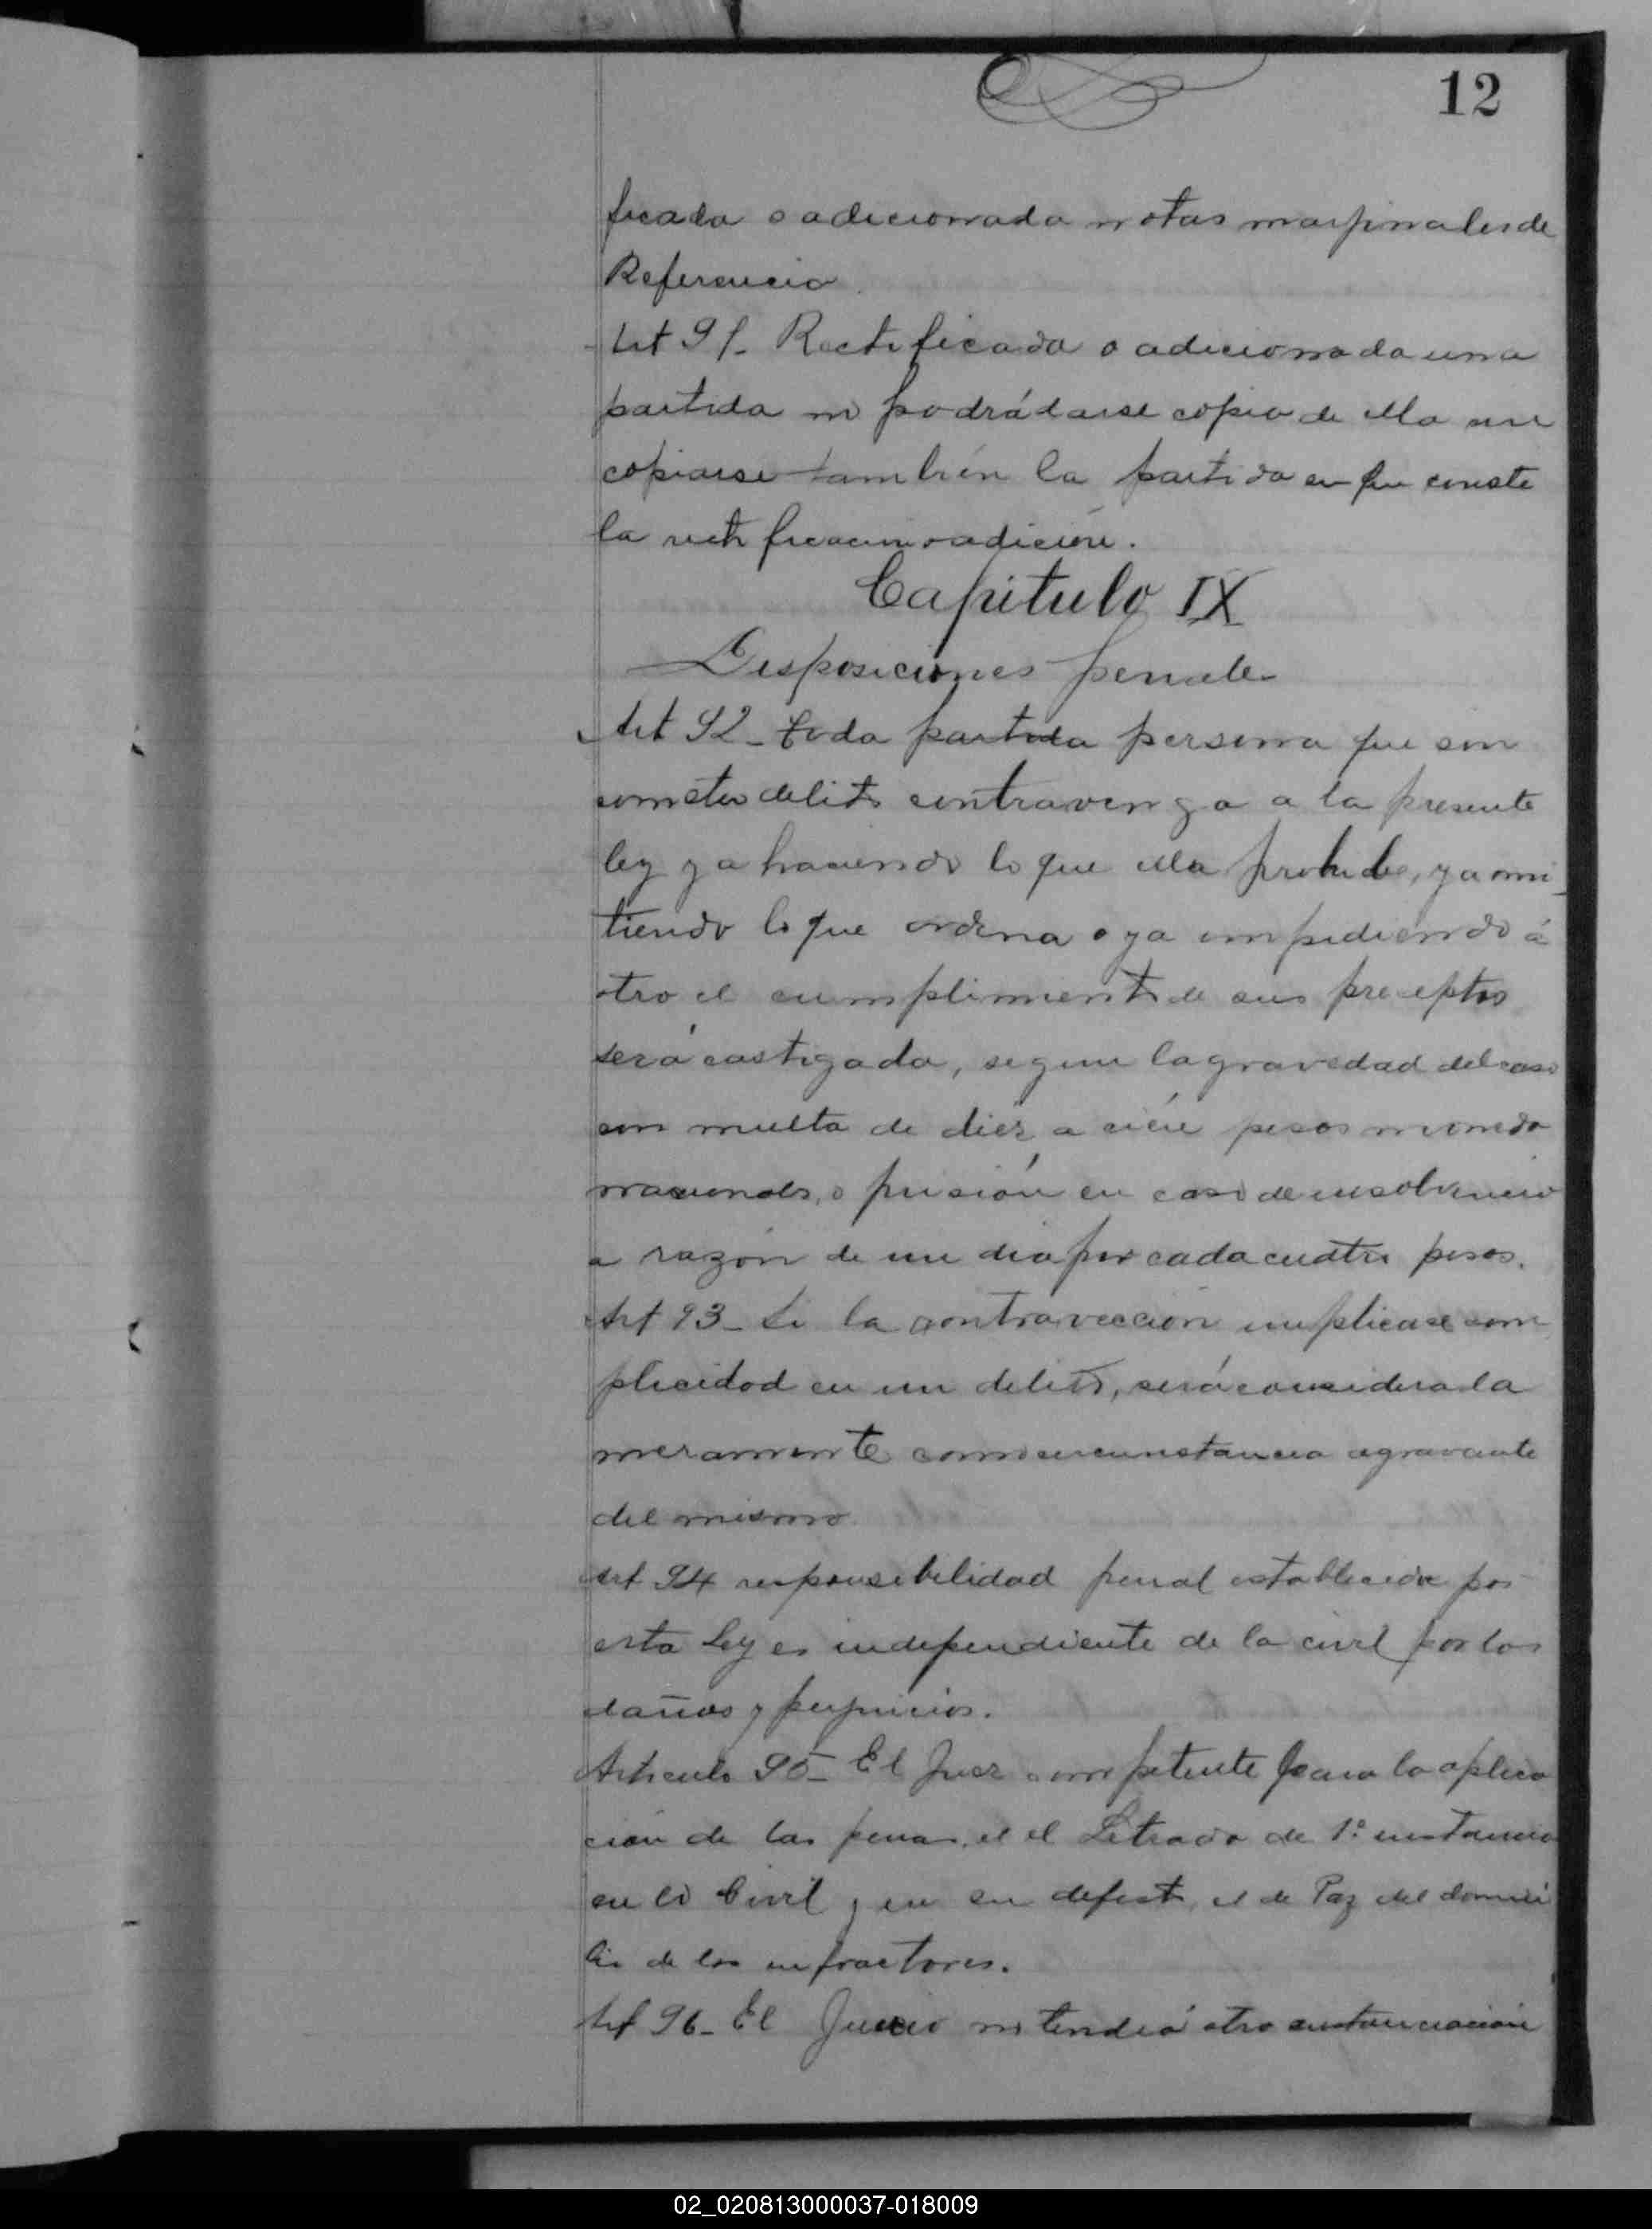 12
ficada o adicionada notas marginales de
Referencia
Art 91- Rectificada o adicionada una
partida no podrá darse copia de ella sin
copiarse también la partida en que conste
la rectificación o adición.
Capitulo IX
Disposiciones penales
Art 92- toda partida persona que sin
cometer delito contravenga a la presente
ley ya haciendo lo que ella prohibe, ya omi_
tiendo lo que ordena o ya impidiendo á
otro el cumplimiento de sus preceptos
será castigada, segun la gravedad del caso
con multa de diez a cién pesos moneda
nacional, o prisión en caso de insolvencia
a razón de un dia por cada cuatro pesos.
Art 93- Si la contravección implicase com
plicidad en un delito, será considerada
meramente como circunstancia agravante
del mismo
Art 94 responsabilidad penal establecida por
esta Ley es independiente de la civil por los
daños y perjuicios.
Articulo 95- El Juez competente para la aplica
ción de las penas, el el Letrado de 1ª instancia
en lo Civil y en su defecto, el de Paz del domici
lio de los infractores.
Art 96- El Juicio no tendrá otra sustanciación
02_020813000037-018009